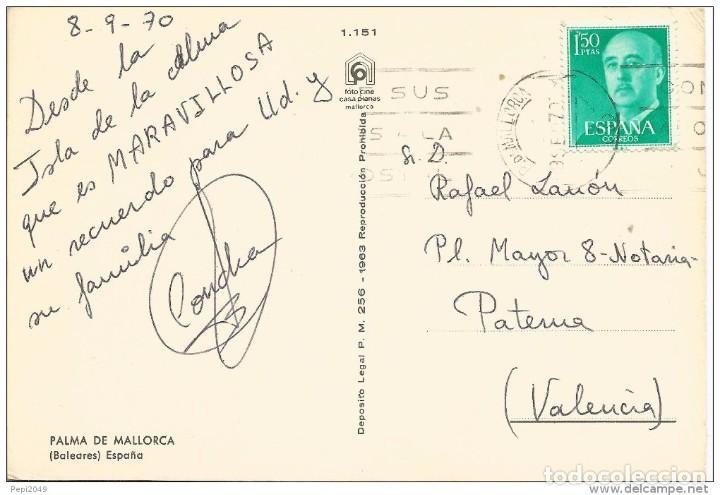 8-9-70
Desde la
Isla de la Calma
que es MARAVILLOSA
un recuerdo para Ud. y
su familia
Concha
PALMA DE MALLORCA
(Baleares) España
1.151
foto cine
casa planas
mallorca
Deposito Legal P. M. 256 - 1963 Reproducción Prohibida
1'50
PTAS
ESPAÑA
CORREOS
MALLORCA
SUS
LA
CON
S. D.
Rafael
Pl. Mayor 8-Notaria-
Paterna
(Valencia)
Pepi2049
todocoleccion
todocoleccion.net
www.delcampe.net